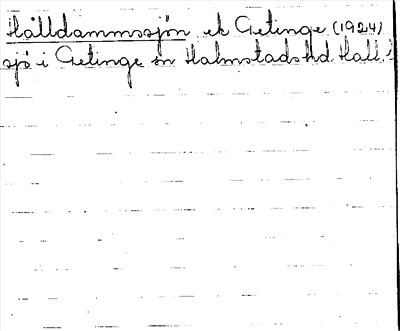 Hälldammssjön ek Getinge (1924)
sjö i Getinge sn Halmstads hd Hall.